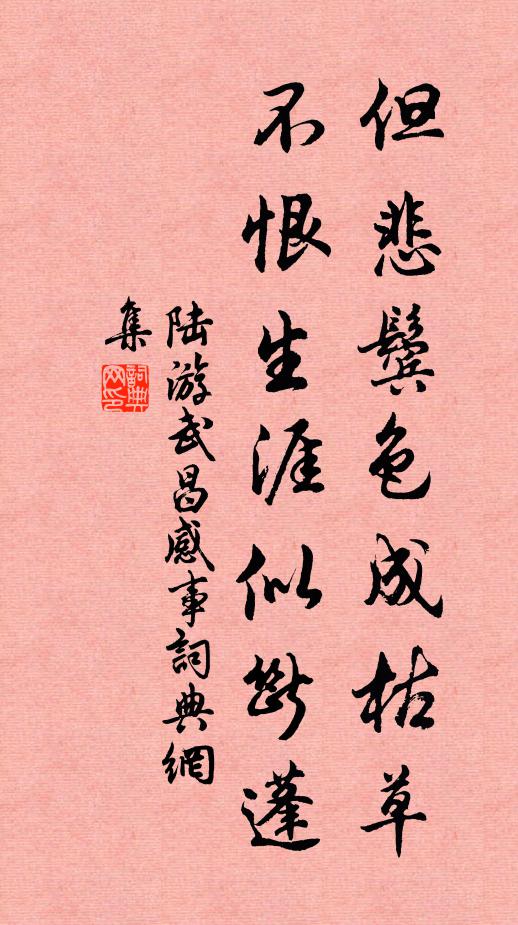 但悲鬓色成枯草
不恨生涯似断蓬
陆游武昌感事詞典網
集
詞典网印